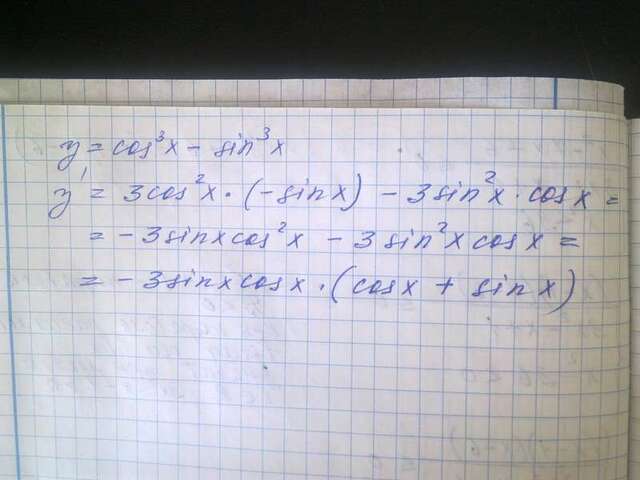 y = cos³x - sin³x
y' = 3cos²x · (-sin x) - 3sin²x · cos x =
= -3sin x cos²x - 3sin²x cos x =
= -3sin x cos x · (cos x + sin x)